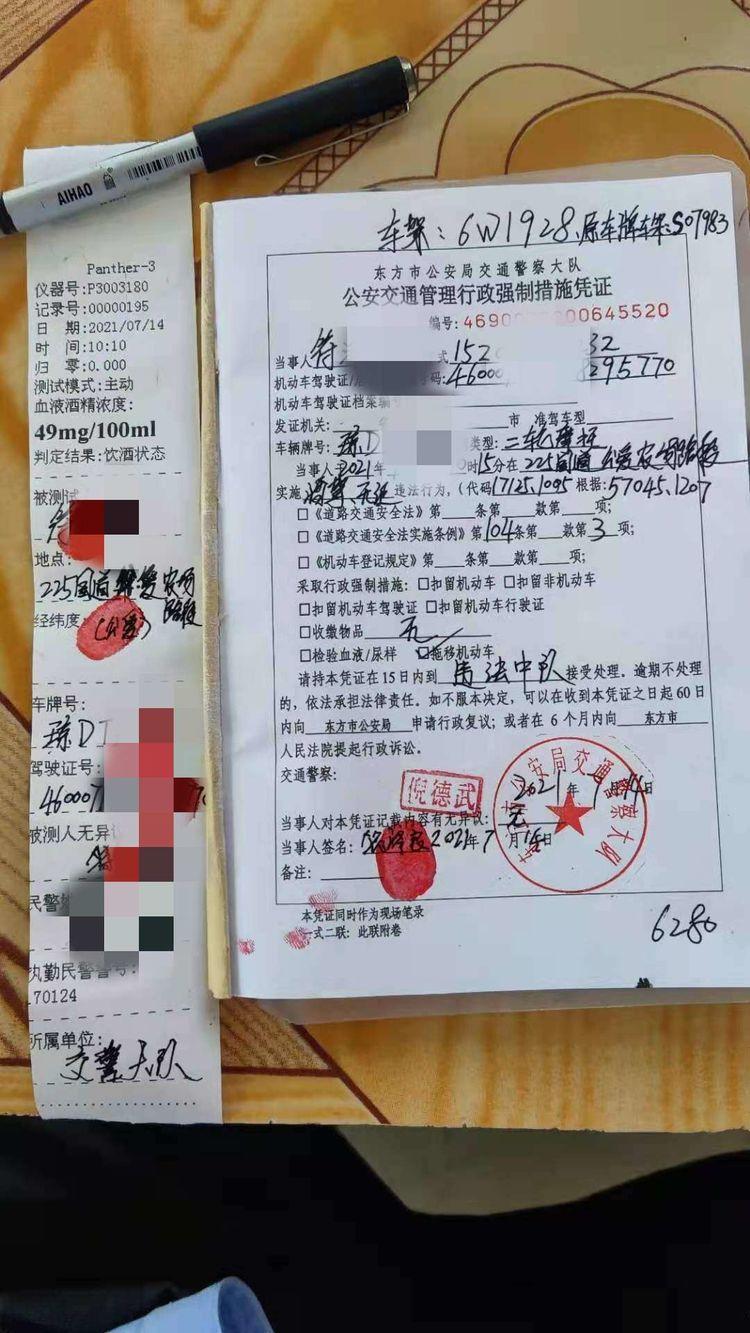 AIHAO
Panther-3
仪器号:P3003180
记录号:00000195
日 期:2021/07/14
时 间:10:10
归 零:0.000
测试模式:主动
血液酒精浓度:
49mg/100ml
判定结果:饮酒状态
被测试
地点:
225国道 农场路段
(公爱)
经纬度
车牌号:
琼D
驾驶证号:
46000
被测人无异
民警
执勤民警警号:
170124
所属单位:
交警大队
车架:6W1928 原车牌车架:S07983
东方市公安局交通警察大队
公安交通管理行政强制措施凭证
编号:4690 00645520
当事人 符 式152 32
机动车驾驶证/ 号码:46000 295770
机动车驾驶证档案编号
发证机关: 市 准驾车型
车辆牌号:琼D 类型:二轮摩托
当事人于2021年 时15分在225国道公爱农场路段
实施 违法行为,(代码17125.1095 根据:57045.1207
□《道路交通安全法》第 条第 款第 项;
□《道路交通安全法实施条例》第104条第 款第3项;
□《机动车登记规定》第 条第 款第 项;
采取行政强制措施:□扣留机动车 □扣留非机动车
□扣留机动车驾驶证 □扣留机动车行驶证
□收缴物品 无
□检验血液/尿样 □拖移机动车
请持本凭证在15日内到 违法中队 接受处理。逾期不处理
的,依法承担法律责任。如不服本决定,可以在收到本凭证之日起60日
内向 东方市公安局 申请行政复议;或者在6个月内向 东方市
人民法院提起行政诉讼。
交通警察:
倪德武
2021年7月14日
当事人对本凭证记载内容有无异议: 无
当事人签名: 2021年7月14日
备注:
公安局交通警察大队
本凭证同时作为现场笔录
一式二联:此联附卷
6280